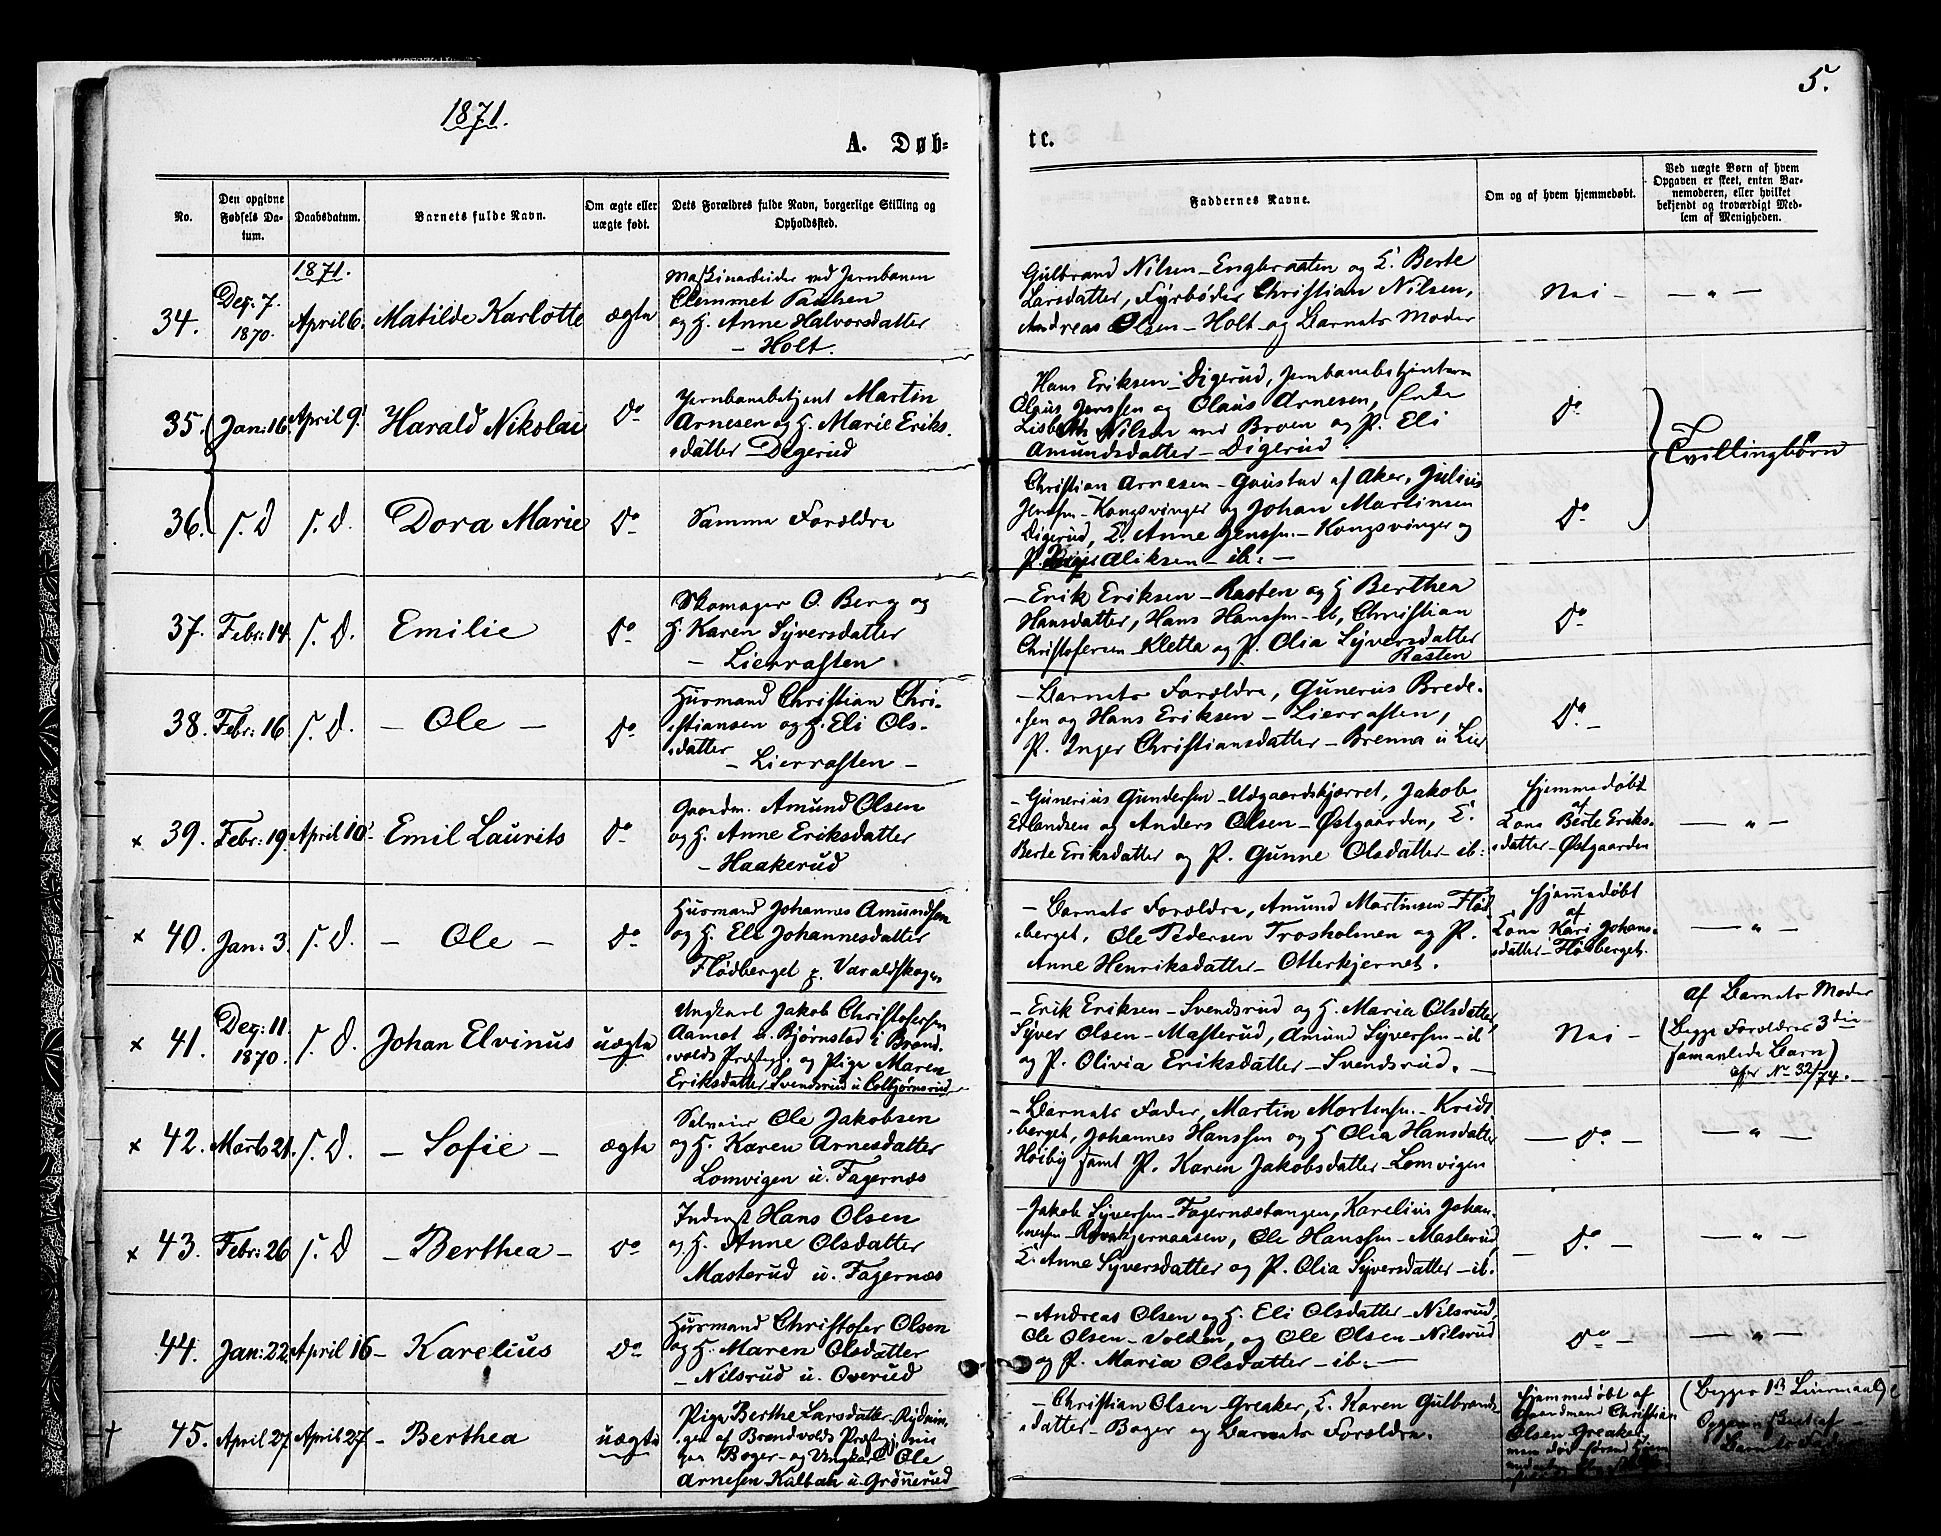 1871.
5.
A. Døb-
te.
No.
Den opgivne
Fødsels Da-
tum.
Daabsdatum.
Barnets fulde Navn.
Om ægte eller
uægte født.
Dets Forældres fulde Navn, borgerlige Stilling og
Opholdssted.
Faddernes Navne.
Om og af hvem hjemmedøbt.
Ved uægte Børn af hvem
Opgaven er skeet, enten Bar-
nemoderen, eller hvilket
bekjendt og troværdigt Med-
lem af Menigheden.
34.
Dec: 7.
1870.
1871.
April 6.
Matilde Karlotte
ægte
Maskinarbeider ved Jernbanen
Clemmet Paulsen
og H. Anne Halvorsdatter
- Holt.
Gulbrand Nilsen - Engbraaten og E. Berte
Larsdatter, Fyrbøder Christian Nilsen,
Andreas Olsen - Holt og Barnets Moder
Nei -
— " —
35.
Jan: 16.
April 9.
Harald Nikolai
do
Jernbanebetjent Martin
Arnesen og H. Marie Eriks-
datter Digerud
Hans Eriksen - Digerud, Jernbanebetjentene
Olaus Jenssen og Olaus Arnesen, Enke
Lisbeth Nilsen ved Broen og P. Eli
Amundsdatter - Digerud.
do
Tvillingbørn
36.
s. D
s. d.
Dora Marie
do
Samme Forældre
Christian Arnesen - Gaustad af Aker, Julius
Jenssen - Kongsvinger og Johan Martinsen
Digerud, E. Anne Jenssen - Kongsvinger og
P. Aliksen - ib: -
do
37.
Febr: 14.
s. d.
Emilie
do
Skomager O. Berg og
H. Karen Syversdatter
- Lierrasten
- Erik Eriksen - Rasten og H Berthea
Hansdatter, Hans Hanssen - ib, Christian
Christofersen - Kletta og P. Olia Syversdatter
Rasten
do
38.
Febr: 16
s. d.
- Ole -
do
Husmand Christian Chri-
stiansen og H. Eli Ols-
datter
- Lierrasten -
- Barnets Forældre, Gunerius Brede-
sen og Hans Eriksen - Lierrasten,
P. Inger Christiansdatter - Brenna u Lier
do -
x 39.
Febr: 19.
April 10.
Emil Laurits
do
Gaardm. Amund Olsen
og H. Anne Eriksdatter
- Haakerud
- Gunerius Gundersen - Udgaardskjærret, Jakob
Erlandsen og Anders Olsen - Østgaarden, E.
Berte Eriksdatter og P. Gunne Olsdatter - ib:
Hjemmedøbt
af
Kone Berte Eriks-
datter - Østgaarden
— " —
x 40.
Jan: 3.
s. d.
- Ole -
do
Husmand Johannes Amundsen
og H. Eli Johannesdatter
Flødberget p. Varaldskogen
- Barnets Forældre, Amund Martinsen Flød-
berget, Ole Pedersen Trosholmen og P.
Anne Henriksdatter - Otterkjernet.
Hjemmedøbt
af
Kone Kari Johans-
datter - Flødberget.
— " —
x 41.
Dec: 11.
1870.
s. d.
Johan Elvinus
uægte
Ungkarl Jakob Christofersen
Aamot u. Bjørnstad i Brand-
volds Præstegj. og Pige Maren
Eriksdatter Svendsrud u Colbjørnsrud
- Erik Eriksen - Svendsrud og H. Maria Olsdatter,
Syver Olsen - Masterud, Amund Syversen - ib
og P. Olivia Eriksdatter - Svendsrud. -
Nei -
af Barnets Moder
(Begge Forældres 3die
samanlede Barn)
after No 32/74.
x 42.
Marts 21.
s. d.
- Sofie -
ægte
Selveier Ole Jakobsen
og H. Karen Arnesdatter
Lomvigen u. Fagernæs
- Barnets Fader, Martin Mortensen - Krids-
berget, Johannes Hanssen og H Olia Hansdatter
Høiby samt P. Karen Jakobsdatter - Lomvigen
— do —
— " —
x 43.
Febr: 26
s. d
- Berthea -
do
Inderst Hans Olsen
og H. Anne Olsdatter
Masterud u. Fagernæs
- Jakob Syversen - Fagernæstangen, Karelius Johan-
nesen - Ravnkjernaasen, Ole Hanssen - Masterud,
E. Anne Syversdatter og P. Olia Syversdatter - ib.
— do —
— " —
44.
Jan: 22.
April 16
- Karelius
do
Husmand Christofer Olsen
og H. Maren Olsdatter
- Nilsrud u. Overud
- Andreas Olsen og H. Eli Olsdatter - Nilsrud,
Ole Olsen - Volden, og Ole Olsen - Nilsrud
og P. Maria Olsdatter - ib. —
do -
— " —
† 45.
April 27
April 27
- Berthea
uægte
Pige Berthe Larsdatter - Rydnin-
gen af Brandvolds Præstegj,
Boger - og Ungkarl Ole
Arnesen Kalbak u. Grønerud
- Christian Olsen - Greaker, E. Karen Gulbrands-
datter - Boger og Barnets Forældre.
Hjemmedøbt af
Gaardmand Christian
Olsen - Greaker,
men døde førend Hjem
(Begges 1ste Leiermaal)
Opgaven skeet af
Barnets Fader